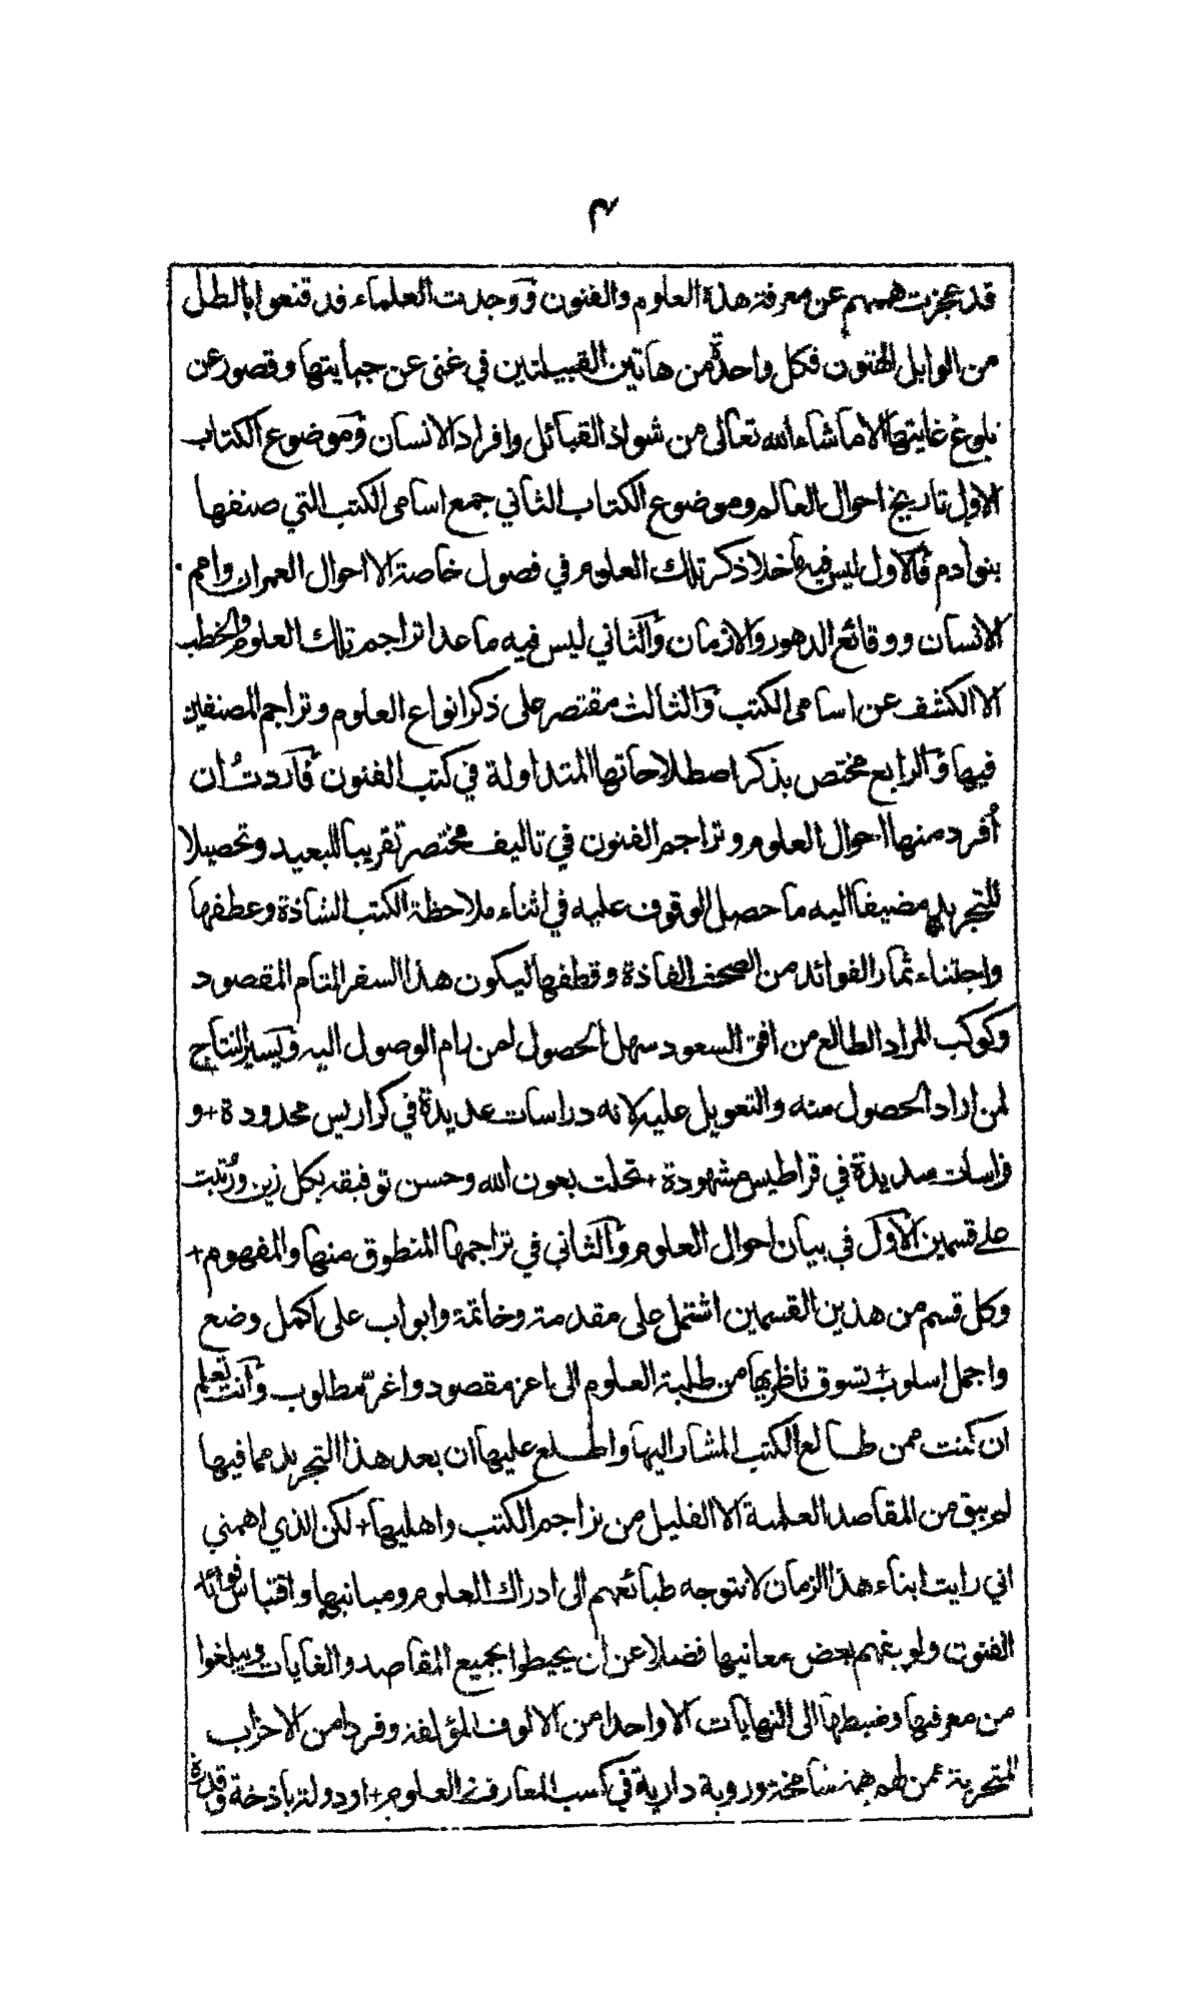 ٣
قد عجزت هممهم عن معرفة هذه العلوم والفنون ووجدت العلماء قد قنعوا بالطل
من الوابل الهتون فكل واحدة من هاتين القبيلتين في غنى عن جبايتها وقصور عن
بلوغ غايتها الا ما شاء الله تعالى من شواذ القبائل وافراد الانسان وموضوع الكتاب
الاول تاريخ احوال العالم وموضوع الكتاب الثاني جمع اسامى الكتب التي صنفها
بنو آدم فالاول ليس فيه ما خلا ذكر تلك العلوم في فصول خاصة الا احوال العمران وامم
الانسان ووقائع الدهور والازمان والثاني ليس فيه ما عدا تراجم تلك العلوم والخطب
الا الكشف عن اسامى الكتب والثالث مقتصر على ذكر انواع العلوم وتراجم المصنفين
فيها والرابع مختص بذكر اصطلاحاتها المتداولة في كتب الفنون فاردتُ ان
أُفرد منها احوال العلوم وتراجم الفنون في تاليف مختصر تقريبا للبعيد وتحصيلا
للتجريد مضيفا اليه ما حصل الوقوف عليه في اثناء ملاحظة الكتب الشاذة وعطفها
واجتناء ثمار الفوائد من الصحف الفاذة وقطفها ليكون هذا السفر التام المقصود
وكوكب المراد الطالع من افق السعود سهل الحصول لمن رام الوصول اليه ويسير النتاج
لمن اراد الحصول منه والتعويل عليه لانه دراسات عديدة في كراريس محدودة + و
فراسات سديدة في قراطيس مشهودة + تحلت بعون الله وحسن توفيقه بكل زين ورُتبت
على قسمين الاول في بيان احوال العلوم والثاني في تراجمها المنطوق منها والمفهوم +
وكل قسم من هذين القسمين اشتمل على مقدمة وخاتمة وابواب على اكمل وضع
واجمل اسلوب + تسوق ناظريها من طلبة العلوم الى اعز مقصود واغر مطلوب وانت تعلم
ان كنت ممن طالع الكتب المشار اليها واطلع عليها ان بعد هذا التجريد مما فيها
لم يبق من المقاصد العلمية الا القليل من تراجم الكتب واهليها + لكن الذي اهمني
اني رايت ابناء هذا الزمان لا تتوجه طبائعهم الى ادراك العلوم ومبانيها واقتباس فوائد
الفنون ولو بفهم بعض معانيها فضلا عن ان يحيطوا بجميع المقاصد والغايات ويبلغوا
من معرفتها وضبطها الى النهايات الا واحدا من الالوف المؤلفة وفردا من الاحزاب
المتحزبة ممن له همة شامخة وروية دارية في كسب المعارف والعلوم + او دولة باذخة وقدرة